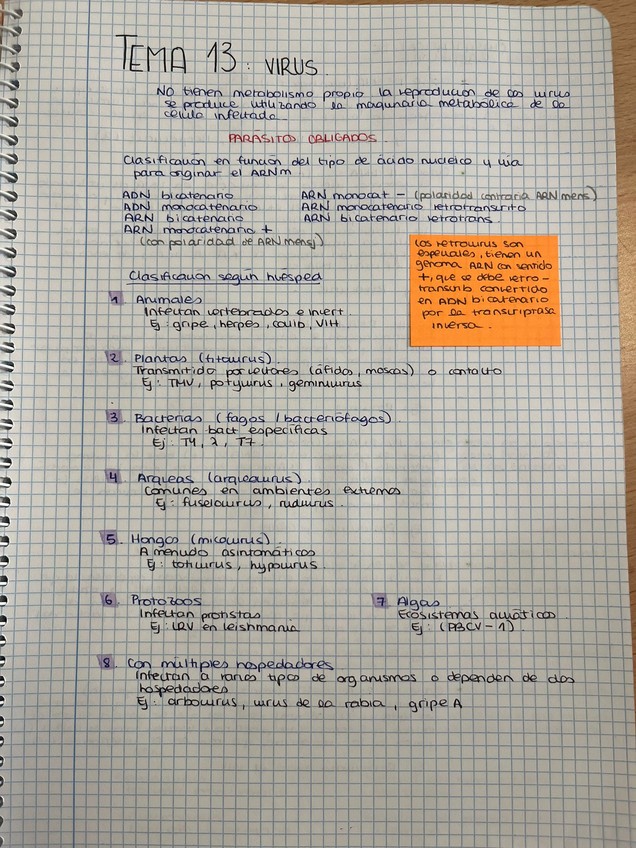 TEMA 13: VIRUS
NO tienen metabolismo propio la reproducción de los virus
se produce utilizando la maquinaria metabólica de la
célula infectada.
PARÁSITOS OBLIGADOS
Clasificación en función del tipo de ácido nucleico y vía
para originar el ARNm
ADN bicatenario
ADN monocatenario
ARN bicatenario
ARN monocatenario +
(con polaridad de ARN mens)
ARN monocat - (polaridad contraria ARN mens)
ARN monocatenario retrotranscrito
ARN bicatenario retrotrans.
Los retrovirus son
especiales, tienen un
genoma ARN con sentido
+, que se debe retro-
transcrib convertido
en ADN bicatenario
por la transcriptasa
inversa.
Clasificación según huésped
1 Animales
Infectan vertebrados e invert.
Ej: gripe, herpes, covid, VIH
2. Plantas (fitovirus).
Transmitido por vectores (áfidos, moscas) o contacto
Ej: TMV, potyvirus, geminivirus
3. Bacterias (fagos / bacteriófagos)
Infectan bact específicas
Ej: T4, λ, T7.
4 Arqueas (arqueovirus)
Comunes en ambientes extremos
Ej: fuselovirus, rudivirus.
5. Hongos (micovirus).
A menudo asintomáticos
Ej: totivirus, hypovirus.
6. Protozoos
Infectan protistas
Ej: LRV en leishmania
7 Algas
Ecosistemas acuáticos
Ej: (PBCV-1).
8. Con múltiples hospedadores
Infectan a varios tipos de organismos o dependen de dos
hospedadores
Ej: arbovirus, virus de la rabia, gripe A